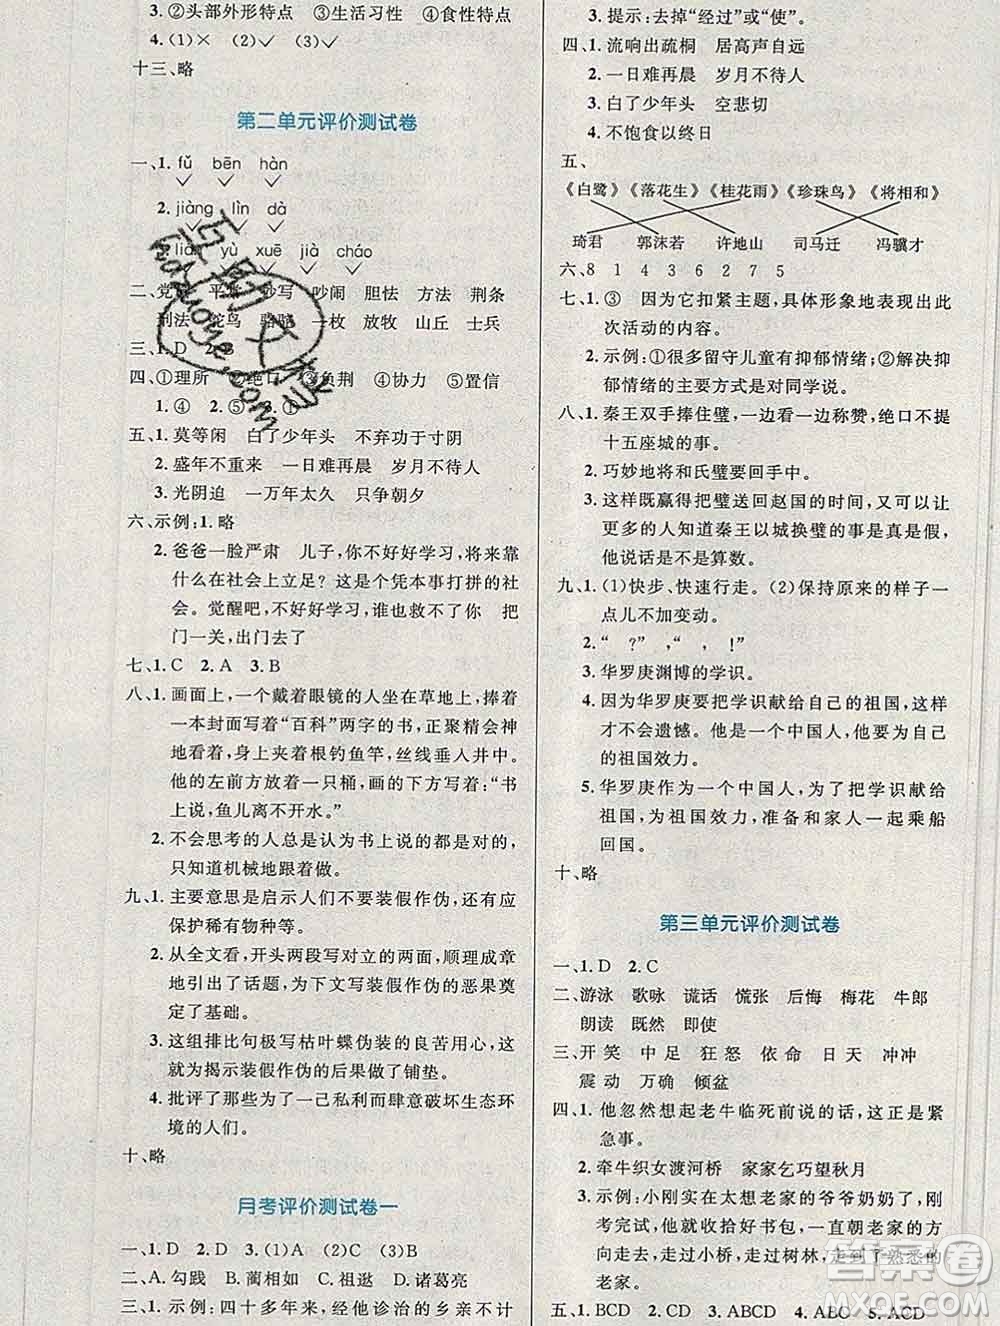 3.②头部外形特点 ③生活习性 ④食性特点
4.(1)× (2)✓ (3)✓
十三、略
第二单元评价测试卷
一、1.fǔ bēn hàn
2.jiàng lìn dà
yù xuē jià cháo
二、 抄写 吵闹 胆怯 方法 荆条
刑法 鸵鸟 一枚 放牧 山丘 士兵
三、1.D 2.B
四、①理所 ②绝口 ③负荆 ④协力 ⑤置信
1.④ 2.⑤ 3.①
五、1.莫等闲 白了少年头 不弃功于寸阴
2.盛年不重来 一日难再晨 岁月不待人
3.光阴迫 一万年太久 只争朝夕
六、示例:1.略
2.爸爸一脸严肃 儿子,你不好好学习,将来靠
什么在社会上立足？这是个凭本事打拼的社
会。觉醒吧,不好好学习,谁也救不了你 把
门一关,出门去了
七、1.C 2.A 3.B
八、1.画面上,一个戴着眼镜的人坐在草地上,捧着
一本封面写着“百科”两字的书,正聚精会神
地看着,身上夹着根钓鱼竿,丝线垂入井中。
他的左前方放着一只桶,画的下方写着:“书
上说,鱼儿离不开水。”
2.不会思考的人总是认为书上说的都是对的,
只知道机械地跟着做。
九、1.主要意思是启示人们不要装假作伪,还有应
保护稀有物种等。
2.从全文看,开头两段写对立的两面,顺理成章
地引出了话题,为下文写装假作伪的恶果奠
定了基础。
3.这组排比句极写枯叶蝶伪装的良苦用心,
这就为揭示装假作伪的后果做了铺垫。
4.批评了那些为了一己私利而肆意破坏生态环
境的人们。
十、略
月考评价测试卷一
一、1.D 2.D 3.(1)A (2)C (3)B
二、A.勾践 B.蔺相如 C.祖逖 D.诸葛亮
三、1.示例:四十多年来,经他诊治的乡亲不计
3.提示:去掉“经过”或“使”。
四、1.流响出疏桐 居高声自远
2.一日难再晨 岁月不待人
3.白了少年头 空悲切
4.不饱食以终日
五、
《白鹭》 《落花生》 《桂花雨》 《珍珠鸟》 《将相和》
琦君 郭沫若 许地山 司马迁 冯骥才
六、8 1 4 3 6 2 7 5
七、1.③ 因为它扣紧主题,具体形象地表现出此
次活动的内容。
2.示例:①很多留守儿童有抑郁情绪;②解决抑
郁情绪的主要方式是对同学说。
八、1.秦王双手捧住璧,一边看一边称赞,绝口不提
十五座城的事。
2.巧妙地将和氏璧要回手中。
3.这样既赢得把璧送回赵国的时间,又可以让
更多的人知道秦王以城换璧的事是真是假,
他说话是不是算数。
九、1.(1)快步、快速行走。(2)保持原来的样子一
点儿不加变动。
2.“ ？”,“ , ！”
3.华罗庚渊博的学识。
4.因为华罗庚要把学识献给自己的祖国,这样
才不会遗憾。他是一个中国人,他要为自己
的祖国效力。
5.华罗庚作为一个中国人,为了把学识献给
祖国,为祖国效力,准备和家人一起乘船
回国。
十、略
第三单元评价测试卷
一、1.D 2.C
二、游泳 歌咏 谎话 慌张 后悔 梅花 牛郎
朗读 既然 即使
三、开 笑 中 足 狂 怒 依 命 日 天 冲冲
震 动 万确 倾盆
四、1.他忽然想起老牛临死前说的话,这正是紧
急事。
2.牵牛织女渡河桥 家家乞巧望秋月
3.示例:小刚实在太想老家的爷爷奶奶了,刚
考完试,就收拾好书包,一直朝老家的方向
走去,走过小桥,走过树林,走到了熟悉的
老家。
五、1.BCD 2.CD 3.ABCD 4.ABC 5.ACD